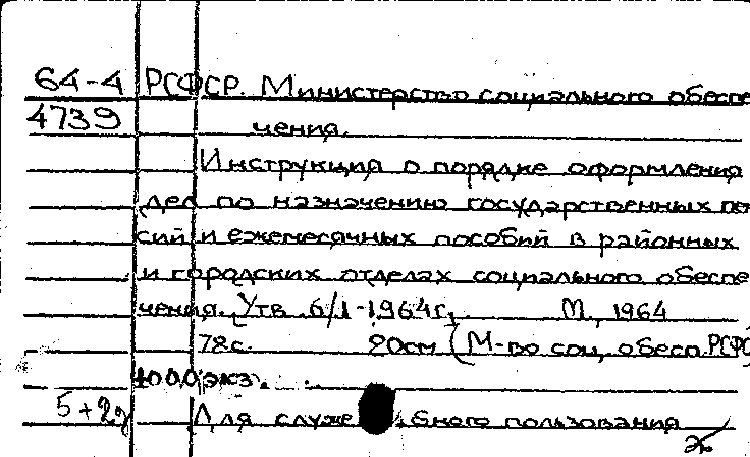 64-4 РСФСР. Министерство социального обеспе
4739 чения.
Инструкция о порядке оформления
дел по назначению государственных пен
сий и ежемесячных пособий в районных
и городских отделах социального обеспе
чения. Утв. 6/I-1964г. М., 1964
78с. 20см (М-во соц. обесп. РСФС
4000 экз.
5+2д Для служебного пользования